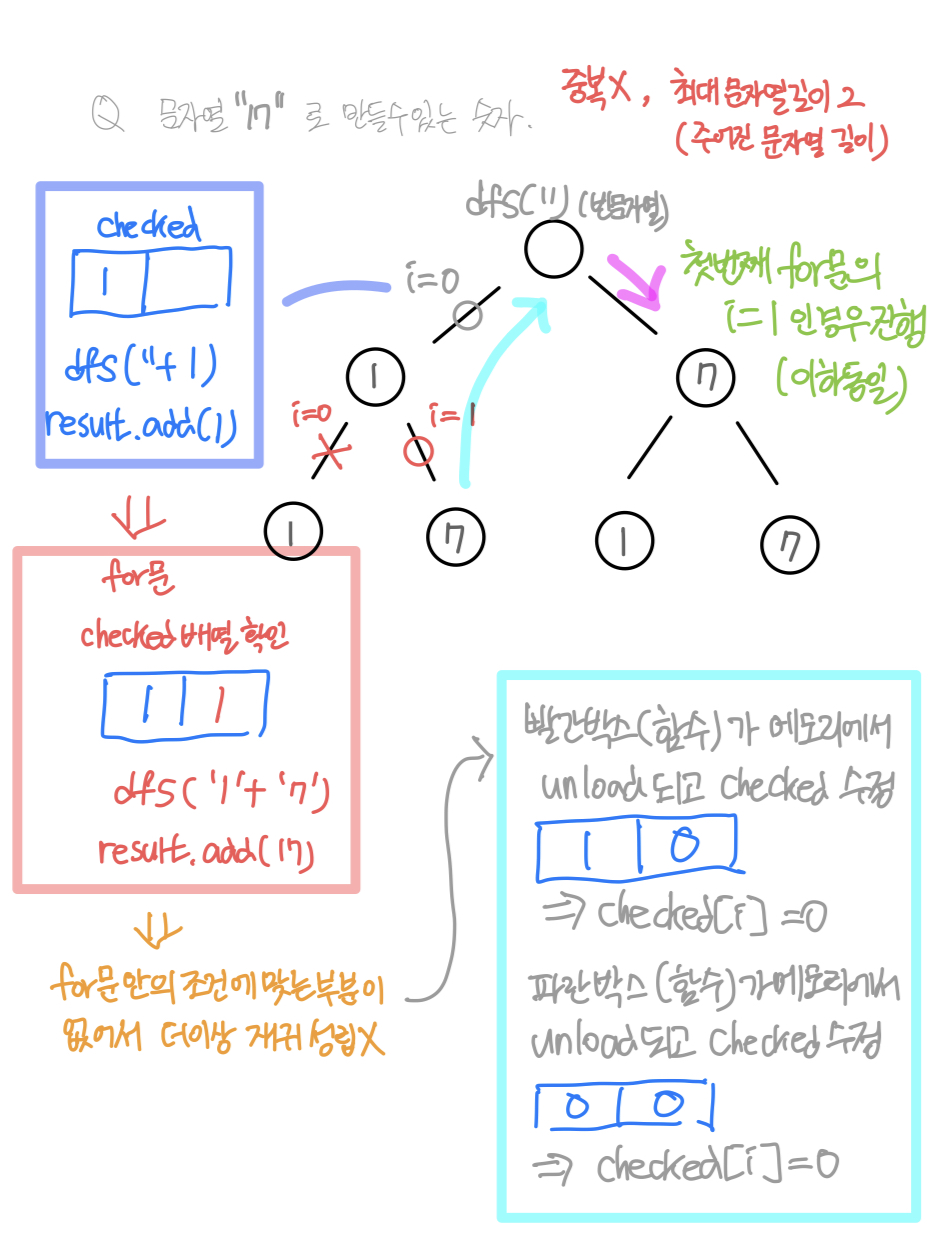 Q 문자열 "17" 로 만들수있는 숫자.
중복X, 최대 문자열길이 2
(주어진 문자열 길이)
checked
1
dfs(''+1)
result.add(1)
dfs('') (빈문자열)
i=0
첫번째 for문의
i=1 인경우진행
(이하동일)
1
7
i=0
i=1
1
7
1
7
for문
checked배열 확인
1 1
dfs('1'+'7')
result.add(17)
for문 안의 조건에 맞는부분이
없어서 더이상 재귀 성립X
빨간박스(함수)가 메모리에서
unload되고 checked 수정
1 0
=> checked[i]=0
파란박스(함수)가메모리에서
unload되고 checked 수정
0 0
=> checked[i]=0